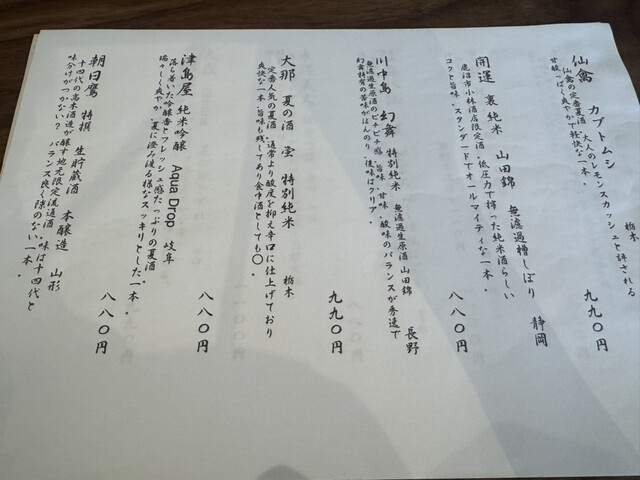 仙禽 カブトムシ 栃木
仙禽の定番夏酒、大人のレモンスカッシュと評される
甘酸っぱく爽やかで軽快な一本。
九九〇円
開運 裏純米 山田錦 無濾過槽しぼり 静岡
鹿沼市小林酒店限定酒。低圧力で搾った純米酒らしい
コクと旨味。スタンダードでオールマイティな一本。
八八〇円
川中島 幻舞 特別純米 無濾過生原酒 山田錦 長野
無濾過生原酒のピチピチ感、旨味、甘味、酸味のバランスが秀逸で
幻舞特有の苦味がほんのり。後味はクリア。
九九〇円
大那 夏の酒 蛍 特別純米 栃木
定番人気の夏酒。通常より酸度を抑え辛口に仕上げており
爽快な一本。旨味も残しており食中酒としても〇。
津島屋 純米吟醸 Aqua Drop 岐阜
落ち着いた吟醸香とフレッシュ感たっぷりの夏酒
瑞々しく爽やか。夏に澄み渡る様なスッキリとした一本。
八八〇円
朝日鷹 特撰 生貯蔵酒 本醸造 山形
十四代の高木酒造が醸す地元限定流通酒。味は十四代と
味分けがつかない？ バランス良く隙のない一本。
八八〇円